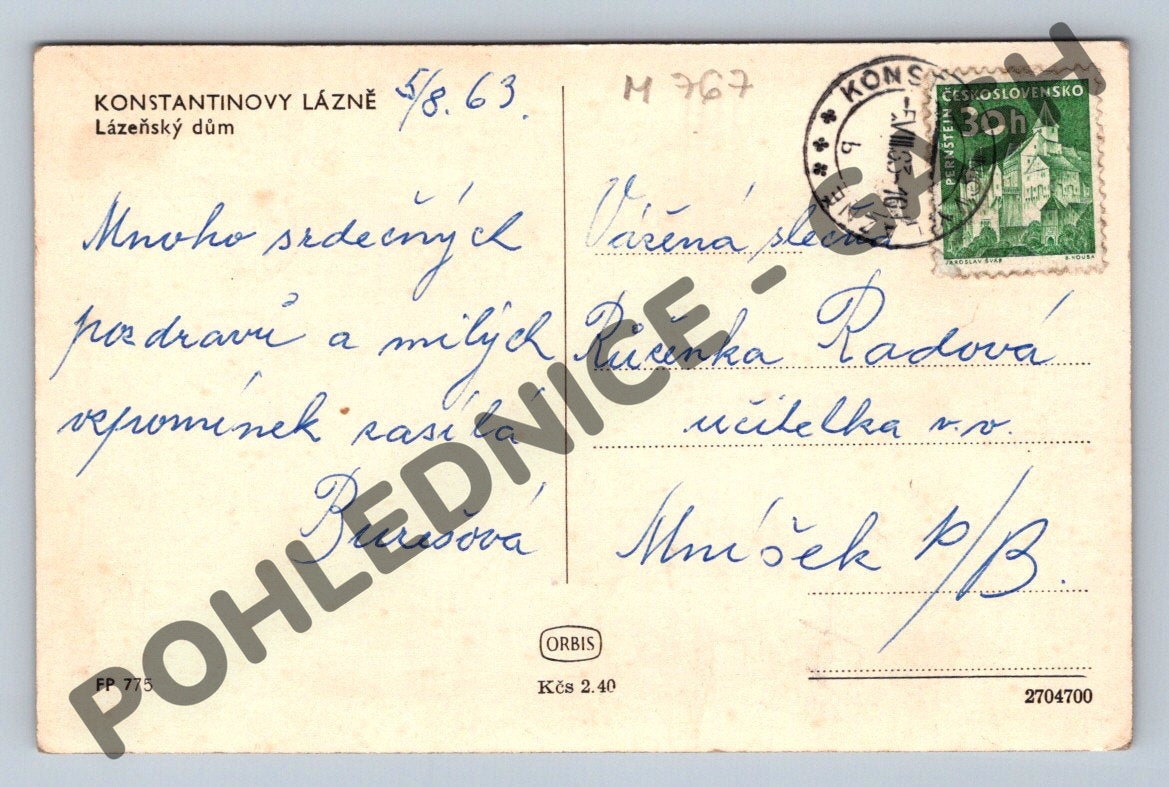 KONSTANTINOVY LÁZNĚ
Lázeňský dům
5/8. 63.
M 767
Mnoho srdečných
pozdravů a milých
vzpomínek zasílá
Burešová
Vážená slečna
Růženka Radová
učitelka v.v.
Mníšek p/B.
KONS
-5.VIII.63-16
b
ČESKOSLOVENSKO
30h
PERNŠTEJN
JAROSLAV ŠVÁB
B. HOUSA
ORBIS
Kčs 2.40
FP 775
2704700
POHLEDNICE - SACH